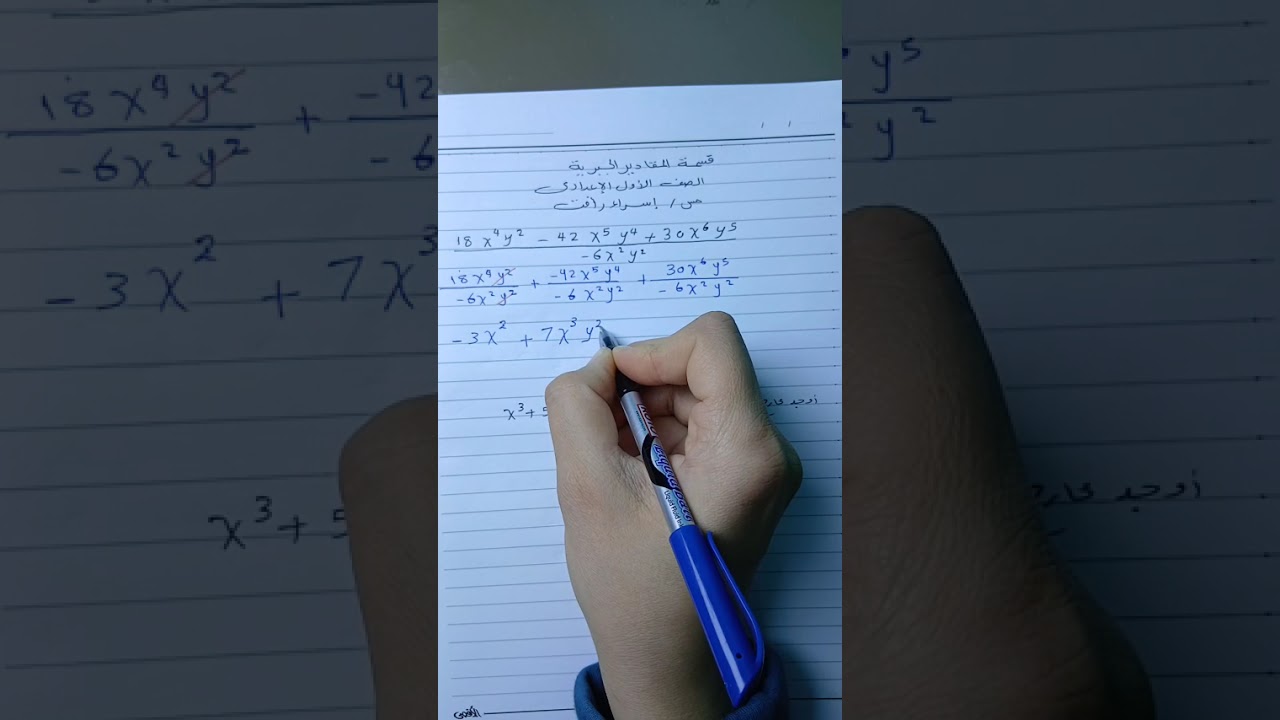 قسمة المقادير الجبرية
الصف الأول الإعدادى
مس / إسراء رأفت
18 x⁴y² - 42 x⁵ y⁴ + 30 x⁶ y⁵
-6x²y²
18x⁴y² + -42x⁵y⁴ + 30x⁶y⁵
-6x²y² -6x²y² -6x²y²
-3x² + 7x³ y²
أوجد
x³+ 5